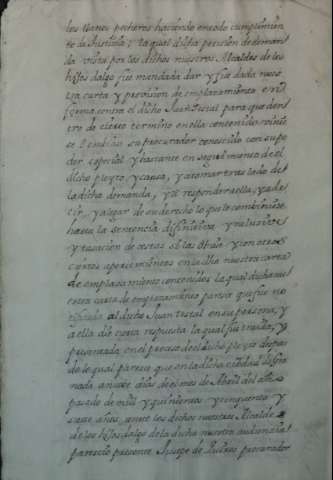 los llanos pecheros haciendo en todo cumplimien
to de Justicia; la qual dicha peticion de deman
da vista por los dichos nuestros Alcaldes de los
hijos dalgo fue mandada dar y fue dada nues
tra carta y provision de emplazamiento en
forma contra el dicho Juan tostal para que den
tro de cierto termino en ella contenido viniese
o embiase su procurador conoscido con su po
der especial y bastante en seguimiento de el
dicho pleyto, y causa, y a tomar traslado de
la dicha demanda, y a responder a ella, y a de
cir, y alegar de su derecho lo que le combiniese
hasta la sentencia difinitiva ynclusive
y tasacion de costas si las obiese y con otros
ciertos apercimientos en la dha nuestra carta
de emplazamiento contenidos la qual dicha nu
estra carta de emplazamiento parece que fue no
tificada al dicho Juan tostal en su persona, y
a ella dio cierta respuesta la qual fue traida, y
presentada en el proceso del dicho pleyto despues
de lo qual parece que en la dicha ciudad de Gra
nada a nueve dias del mes de Abril del año
pasado de mill y quinientos y cinquenta y
siete años, ante los dichos nuestros Alcaldes
de los hijos dalgo de la dicha nuestra audiencia
parecio presente procurador